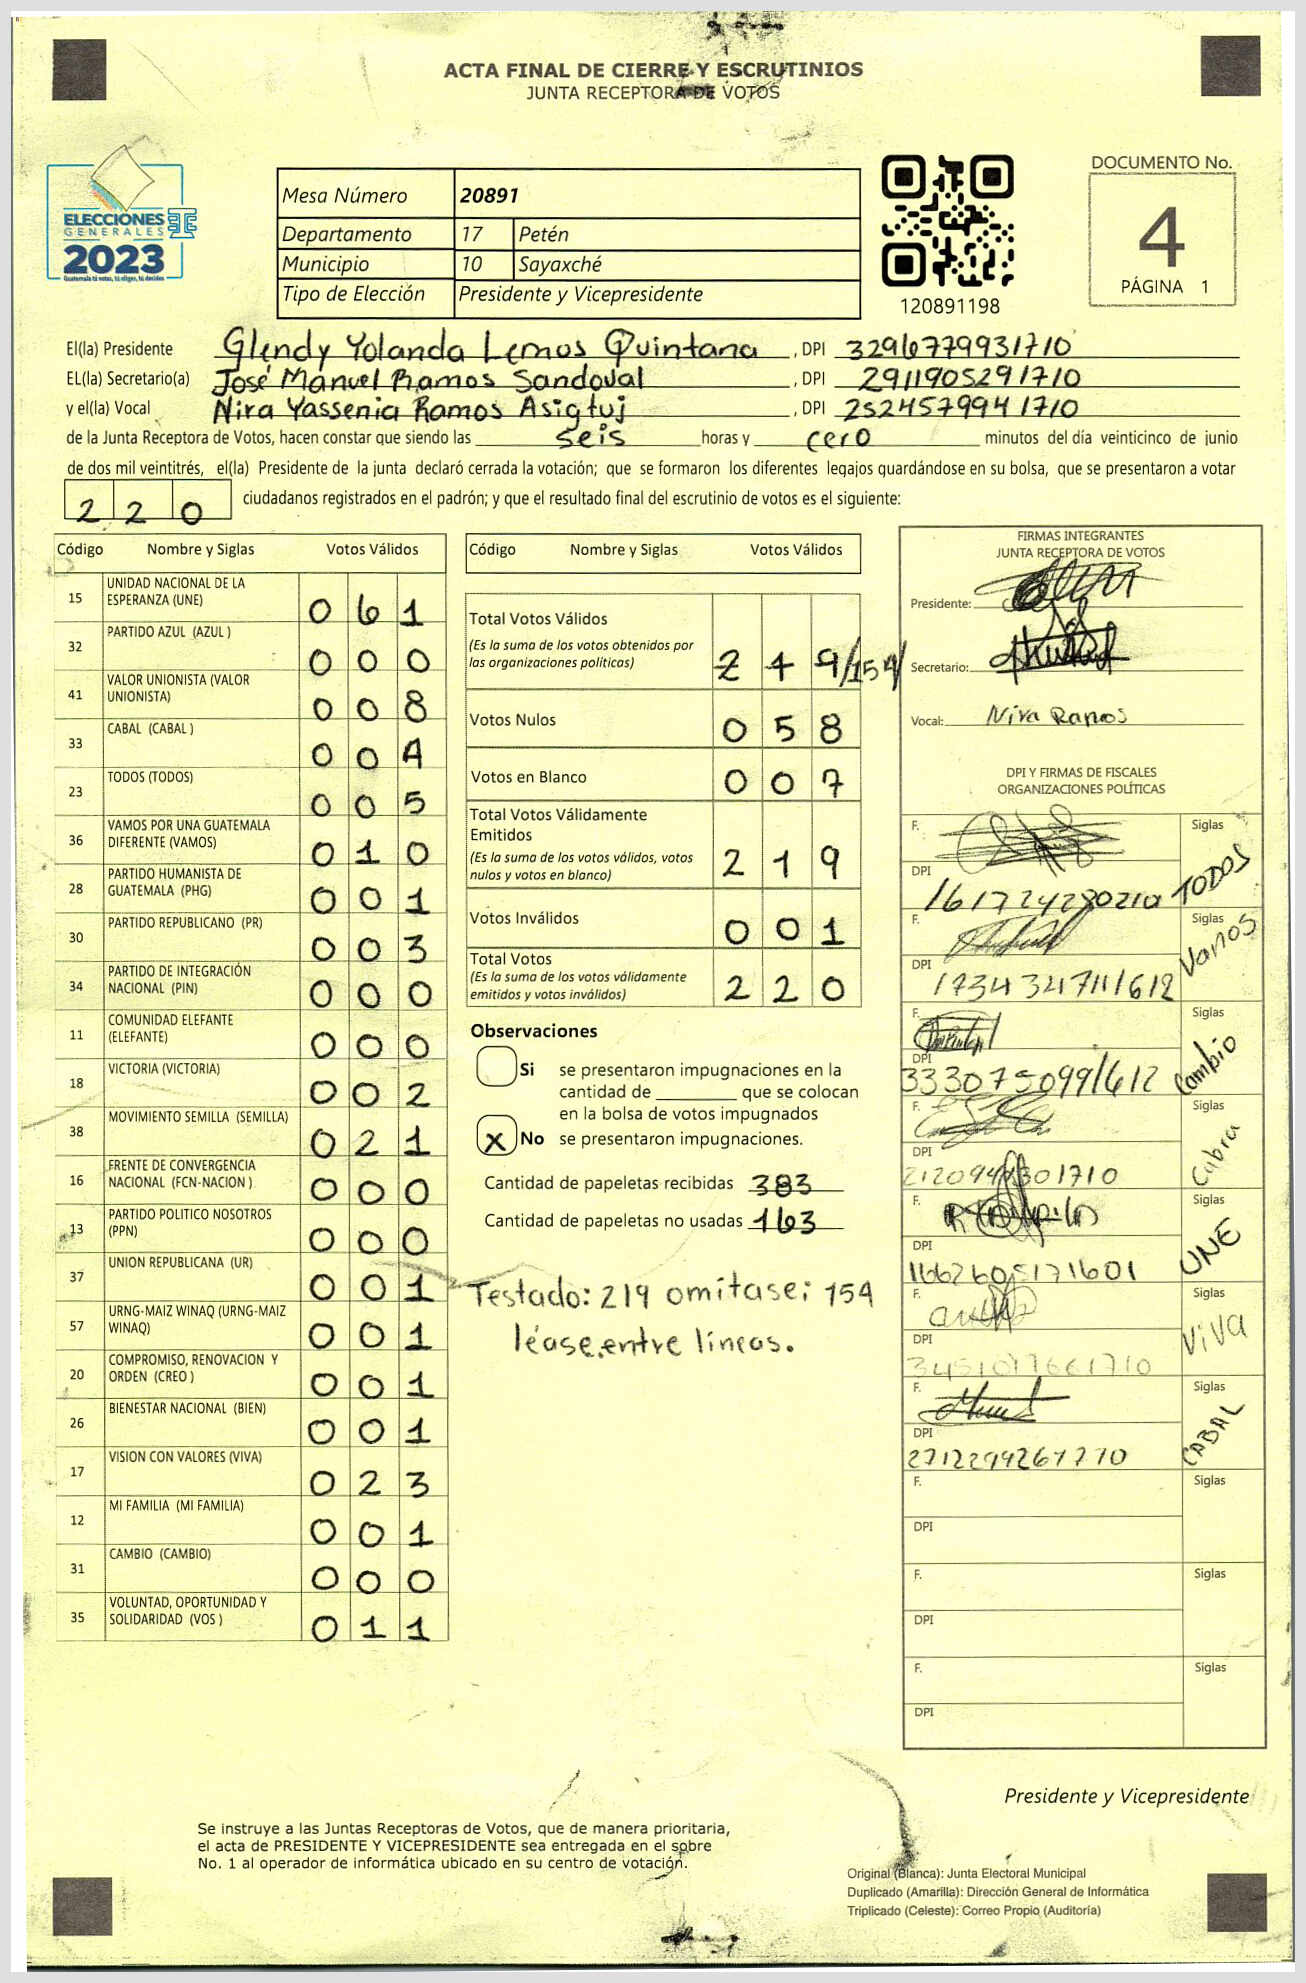 ACTA FINAL DE CIERRE Y ESCRUTINIOS
JUNTA RECEPTORA DE VOTOS
ELECCIONES
GENERALES
2023
Guatemala tú votas, tú eliges, tú decides
Mesa Número 20891
Departamento 17 Petén
Municipio 10 Sayaxché
Tipo de Elección Presidente y Vicepresidente
120891198
DOCUMENTO No.
4
PÁGINA 1
El(la) Presidente Glendy Yolanda Lemos Quintana, DPI 3296779931710
EL(la) Secretario(a) José Manuel Ramos Sandoval, DPI 2911905291710
y el(la) Vocal Nira Yassenia Ramos Asigtuj, DPI 2524579941710
de la Junta Receptora de Votos, hacen constar que siendo las seis horas y cero minutos del día veinticinco de junio
de dos mil veintitrés, el(la) Presidente de la junta declaró cerrada la votación; que se formaron los diferentes legajos guardándose en su bolsa, que se presentaron a votar
220 ciudadanos registrados en el padrón; y que el resultado final del escrutinio de votos es el siguiente:
Código Nombre y Siglas Votos Válidos
15 UNIDAD NACIONAL DE LA ESPERANZA (UNE) 061
32 PARTIDO AZUL (AZUL ) 000
41 VALOR UNIONISTA (VALOR UNIONISTA) 008
33 CABAL (CABAL ) 004
23 TODOS (TODOS) 005
36 VAMOS POR UNA GUATEMALA DIFERENTE (VAMOS) 010
28 PARTIDO HUMANISTA DE GUATEMALA (PHG) 001
30 PARTIDO REPUBLICANO (PR) 003
34 PARTIDO DE INTEGRACIÓN NACIONAL (PIN) 000
11 COMUNIDAD ELEFANTE (ELEFANTE) 000
18 VICTORIA (VICTORIA) 002
38 MOVIMIENTO SEMILLA (SEMILLA) 021
16 FRENTE DE CONVERGENCIA NACIONAL (FCN-NACION ) 000
13 PARTIDO POLITICO NOSOTROS (PPN) 000
37 UNION REPUBLICANA (UR) 001
57 URNG-MAIZ WINAQ (URNG-MAIZ WINAQ) 001
20 COMPROMISO, RENOVACION Y ORDEN (CREO ) 001
26 BIENESTAR NACIONAL (BIEN) 001
17 VISION CON VALORES (VIVA) 023
12 MI FAMILIA (MI FAMILIA) 001
31 CAMBIO (CAMBIO) 000
35 VOLUNTAD, OPORTUNIDAD Y SOLIDARIDAD (VOS ) 011
Código Nombre y Siglas Votos Válidos
Total Votos Válidos
(Es la suma de los votos obtenidos por
las organizaciones políticas) 219/154/
Votos Nulos 058
Votos en Blanco 007
Total Votos Válidamente
Emitidos
(Es la suma de los votos válidos, votos
nulos y votos en blanco) 219
Votos Inválidos 001
Total Votos
(Es la suma de los votos válidamente
emitidos y votos inválidos) 220
Observaciones
Si se presentaron impugnaciones en la
cantidad de ________ que se colocan
en la bolsa de votos impugnados
X No se presentaron impugnaciones.
Cantidad de papeletas recibidas 383
Cantidad de papeletas no usadas 163
Testado: 219 omitase; 154
léase entre líneas.
FIRMAS INTEGRANTES
JUNTA RECEPTORA DE VOTOS
Presidente:
Secretario:
Vocal: Nira Ramos
DPI Y FIRMAS DE FISCALES
ORGANIZACIONES POLÍTICAS
F. Siglas TODOS
DPI
F. Siglas Vamos
DPI
F. Siglas Cambio
DPI 3330750991612
F. Siglas Cabra
DPI
F. Siglas UNE
DPI 1662605171601
F. Siglas ViVa
DPI
F. Siglas CABAL
DPI
F. Siglas
DPI
F. Siglas
DPI
F. Siglas
DPI
Presidente y Vicepresidente
Se instruye a las Juntas Receptoras de Votos, que de manera prioritaria,
el acta de PRESIDENTE Y VICEPRESIDENTE sea entregada en el sobre
No. 1 al operador de informática ubicado en su centro de votación.
Original (Blanca): Junta Electoral Municipal
Duplicado (Amarilla): Dirección General de Informática
Triplicado (Celeste): Correo Propio (Auditoría)